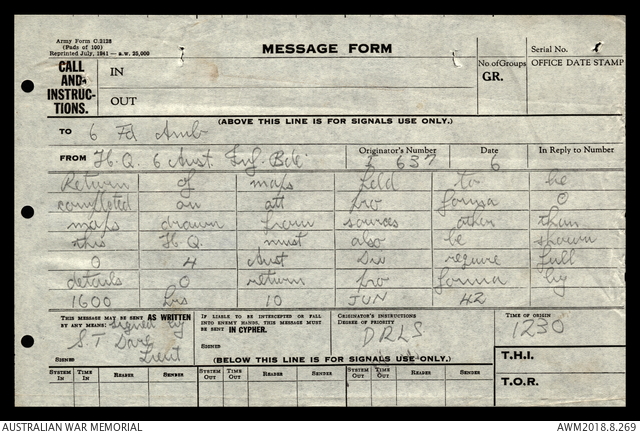 Army Form C.2128
(Pads of 100)
Reprinted July, 1941 — a.w. 25,000
MESSAGE FORM
Serial No.
CALL AND INSTRUCTIONS.
IN
OUT
No. of Groups
GR.
OFFICE DATE STAMP
(ABOVE THIS LINE IS FOR SIGNALS USE ONLY.)
TO 6 Fd Amb
FROM H.Q. 6 Aust. Inf. Bde
Originator's Number I 637
Date 6
In Reply to Number
Return of maps held to be
completed on att pro forma O
maps drawn from sources other than
this H.Q. must also be shown
O 4 Aust Div require full
details O return pro forma by
1600 hrs 10 JUN 42
THIS MESSAGE MAY BE SENT AS WRITTEN BY ANY MEANS.
signed by
S.T. Lieut
SIGNED
IF LIABLE TO BE INTERCEPTED OR FALL INTO ENEMY HANDS, THIS MESSAGE MUST BE SENT IN CYPHER.
SIGNED
ORIGINATOR'S INSTRUCTIONS
DEGREE OF PRIORITY
DRLS
TIME OF ORIGIN
1230
(BELOW THIS LINE IS FOR SIGNALS USE ONLY.)
T.H.I.
SYSTEM IN TIME IN READER SENDER SYSTEM OUT TIME OUT READER SENDER SYSTEM OUT TIME OUT READER SENDER
T.O.R.
AUSTRALIAN WAR MEMORIAL
AWM2018.8.269